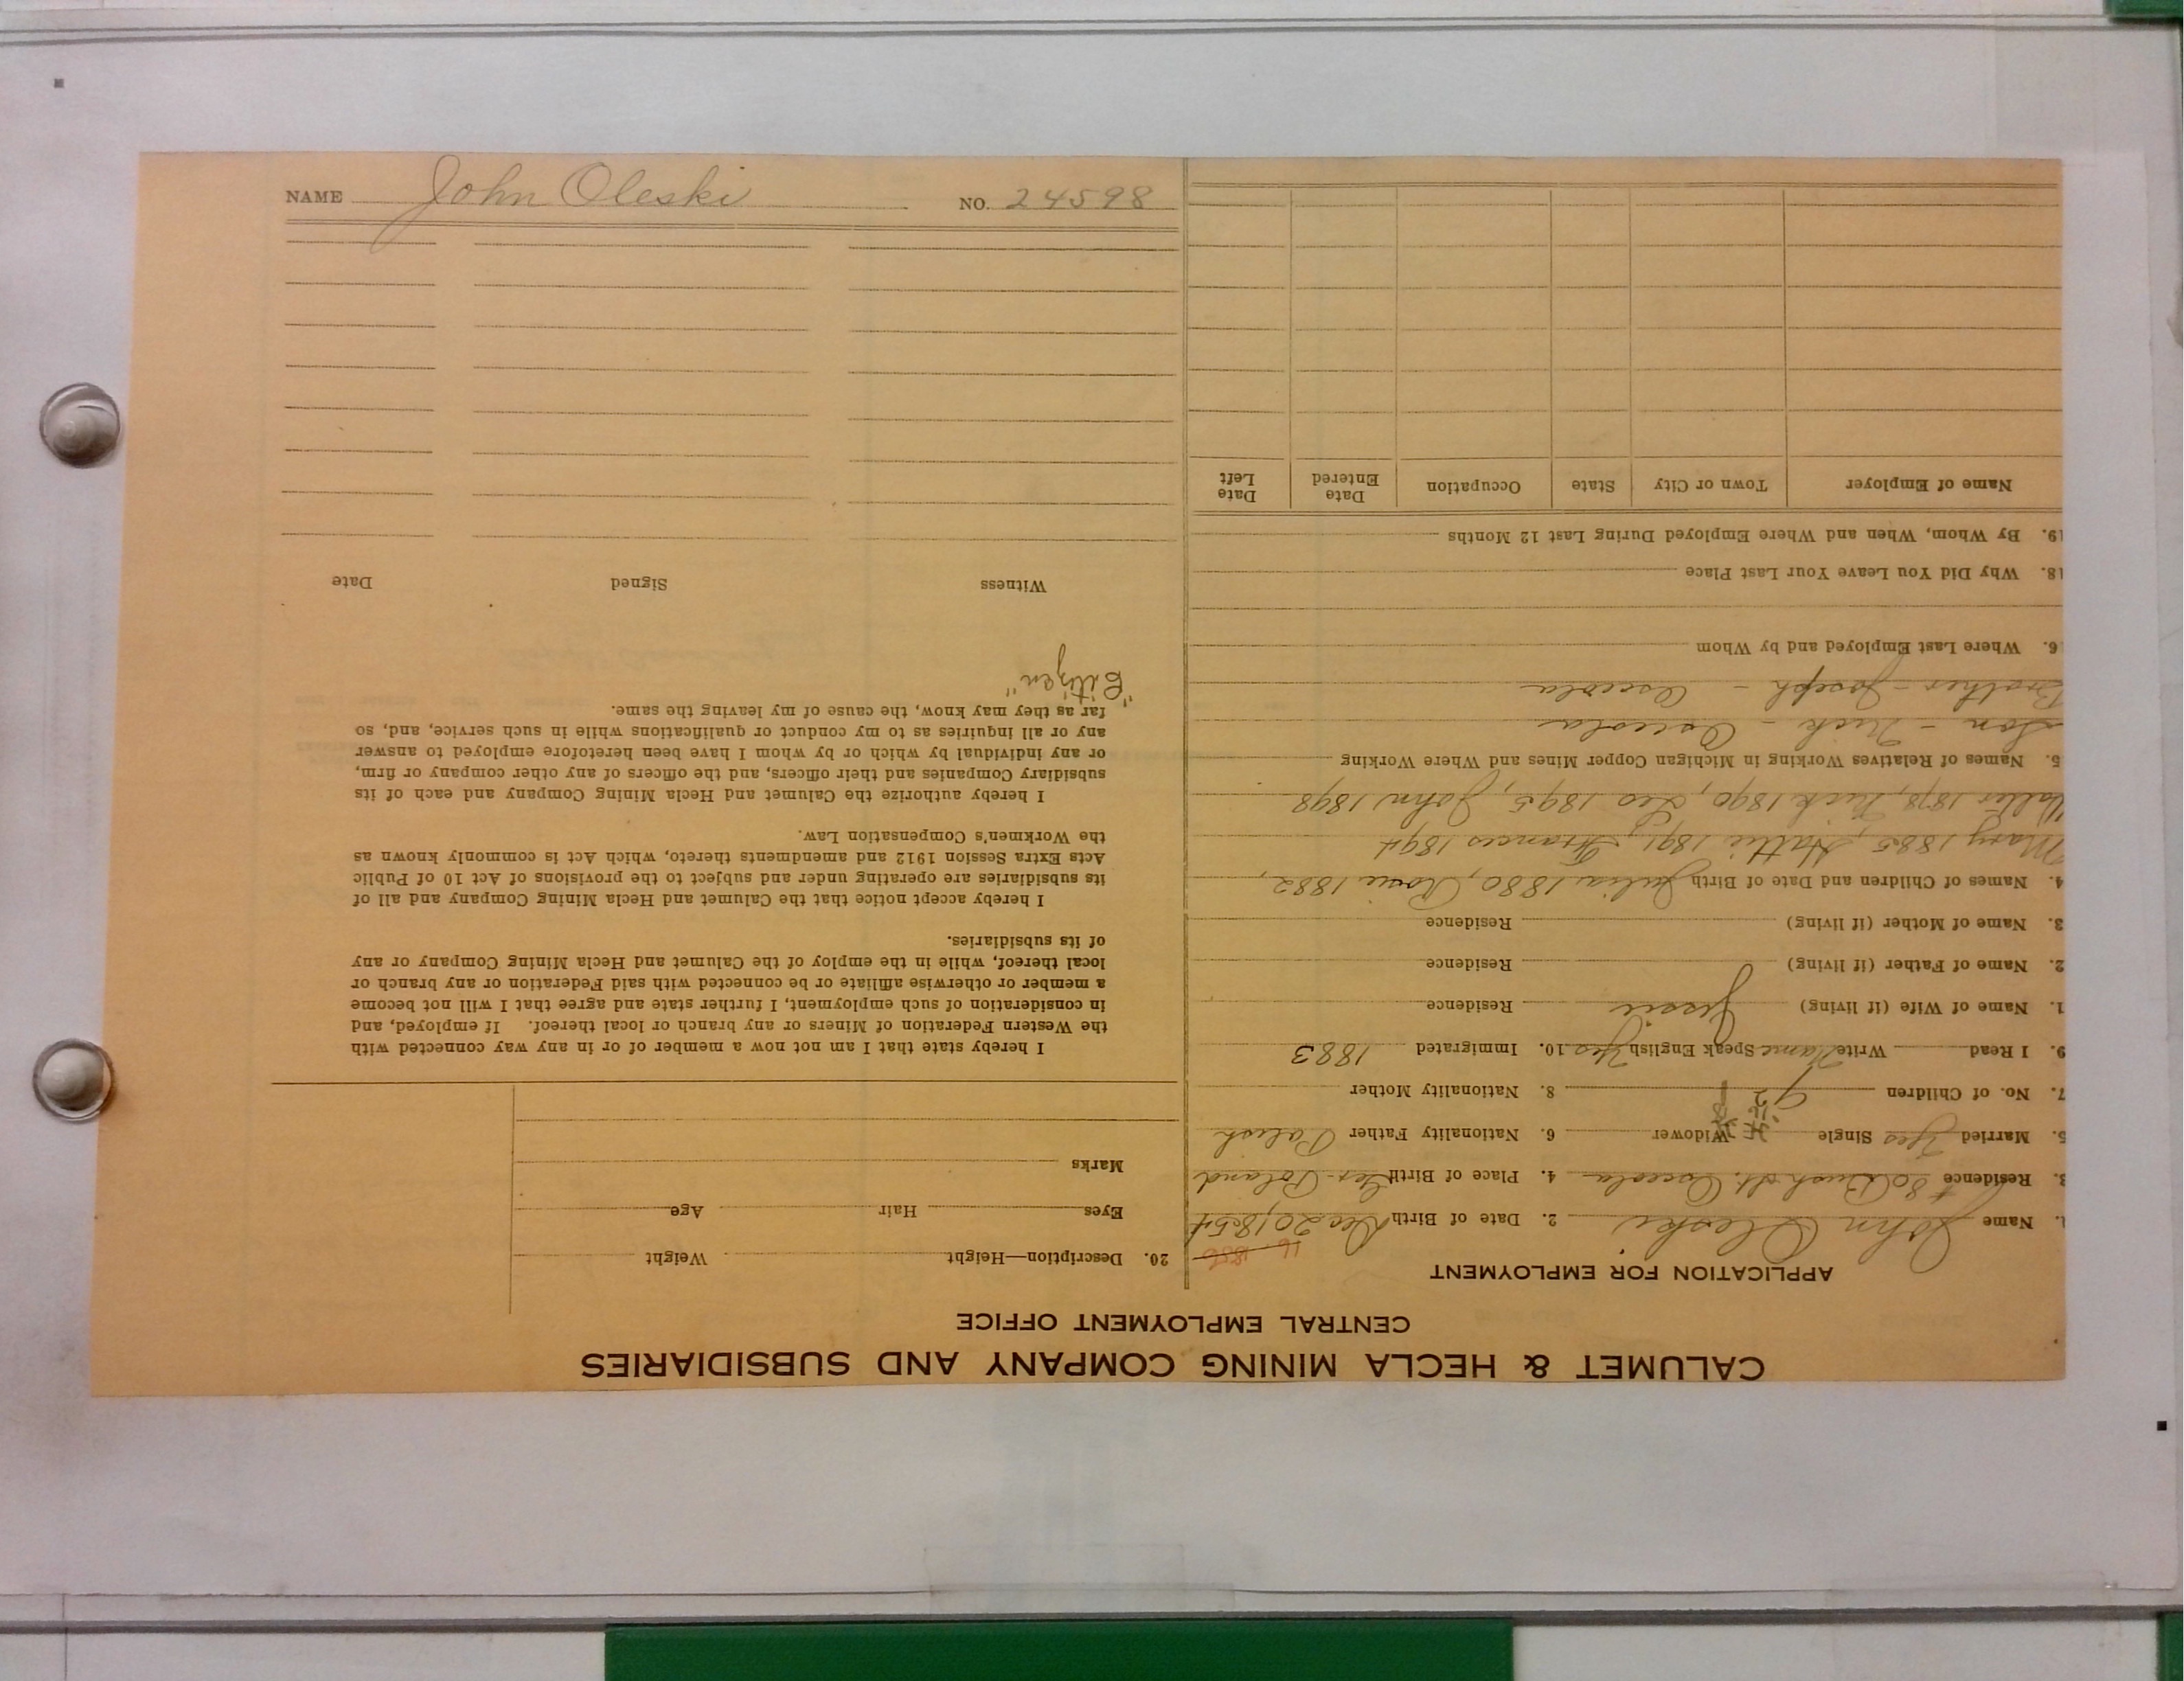 NAME John Oleski NO. 24598
CALUMET & HECLA MINING COMPANY AND SUBSIDIARIES
CENTRAL EMPLOYMENT OFFICE
APPLICATION FOR EMPLOYMENT
16 1856
1. Name John Oleski 2. Date of Birth Dec 20, 1854
3. Residence # 80 Bush St. Osceola 4. Place of Birth Ger-Poland
5. Married Yes Single Widower 6. Nationality Father Polish
7. No. of Children 9 8. Nationality Mother
9. I Read Write Name Speak English Yes 10. Immigrated 1883
1. Name of Wife (if living) Jessie Residence
2. Name of Father (if living) Residence
3. Name of Mother (if living) Residence
4. Names of Children and Date of Birth Julia 1880, Rosie 1882,
Mary 1885, Hattie 1891, Frances 1894
Valter 1878, Nick 1890, Leo 1895, John 1898
5. Names of Relatives Working in Michigan Copper Mines and Where Working
Son - Nick - Osceola
Brother - Joseph - Osceola
6. Where Last Employed and by Whom
18. Why Did You Leave Your Last Place
19. By Whom, When and Where Employed During Last 12 Months
Name of Employer Town or City State Occupation Date Entered Date Left
20. Description—Height Weight
Eyes Hair Age
Marks
I hereby state that I am not now a member of or in any way connected with
the Western Federation of Miners or any branch or local thereof. If employed, and
in consideration of such employment, I further state and agree that I will not become
a member or otherwise affiliate or be connected with said Federation or any branch or
local thereof, while in the employ of the Calumet and Hecla Mining Company or any
of its subsidiaries.
I hereby accept notice that the Calumet and Hecla Mining Company and all of
its subsidiaries are operating under and subject to the provisions of Act 10 of Public
Acts Extra Session 1912 and amendments thereto, which Act is commonly known as
the Workmen's Compensation Law.
I hereby authorize the Calumet and Hecla Mining Company and each of its
subsidiary Companies and their officers, and the officers of any other company or firm,
or any individual by which or by whom I have been heretofore employed to answer
any or all inquiries as to my conduct or qualifications while in such service, and, so
far as they may know, the cause of my leaving the same.
"Citizen"
Witness Signed Date